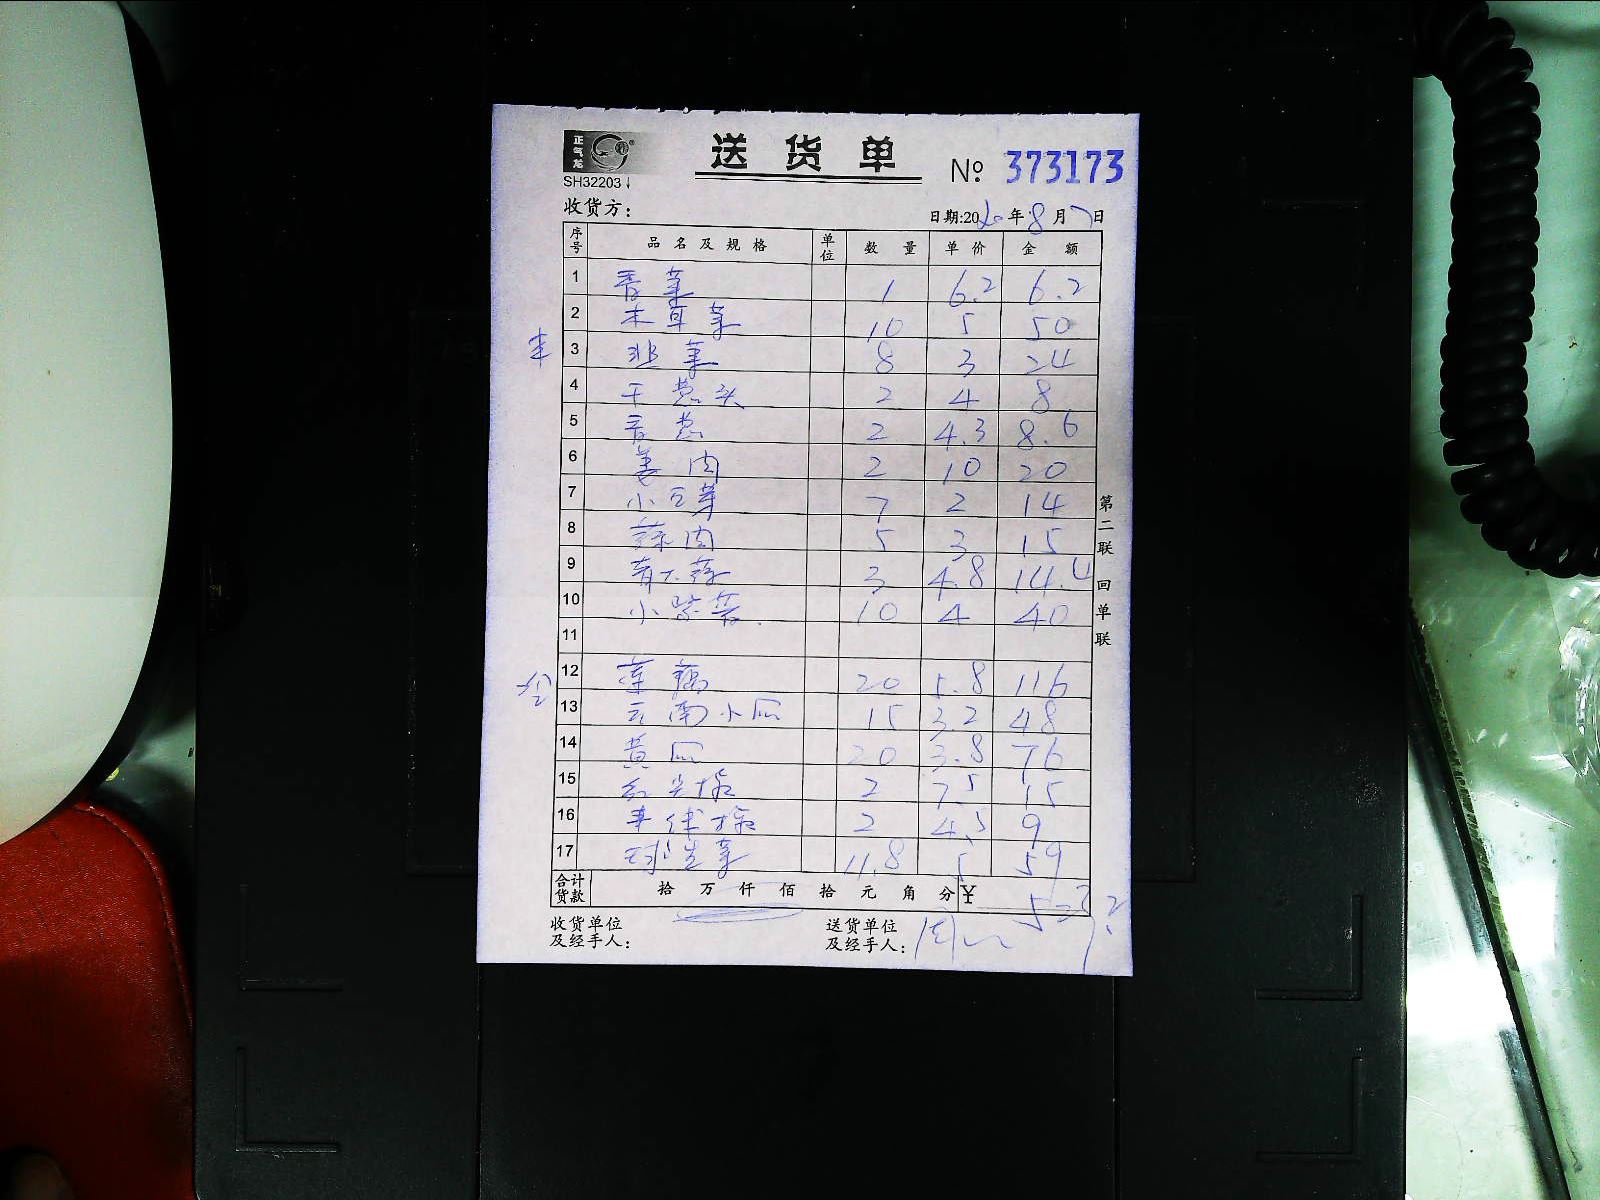 正气龙
送货单
№ 373173
SH32203
收货方：
日期:2020年8月7日
序号 品名及规格 单位 数量 单价 金额
1 香菜 1 6.2 6.2
2 木耳菜 10 5 50
3 韭菜 8 3 24
4 干葱头 2 4 8
5 香葱 2 4.3 8.6
6 姜肉 2 10 20
7 小豆芽 7 2 14
8 蒜肉 5 3 15
9 青大蒜 3 4.8 14.4
10 小紫薯 10 4 40
11
12 莲藕 20 5.8 116
13 云南小瓜 15 3.2 48
14 黄瓜 20 3.8 76
15 红尖椒 2 7.5 15
16 2 4.5 9
17 球生菜 11.8 5 59
合计货款 拾万仟佰拾元角分 ¥ 523.2
收货单位及经手人：
送货单位及经手人：
第二联 回单联